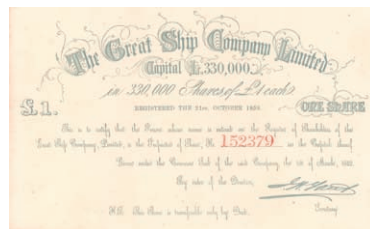 The Great Ship Company Limited
Capital £330,000.
in 330,000 Shares of £1 each
£1.
REGISTERED THE 21st. OCTOBER 1858.
ONE SHARE
This is to certify that the Person whose name is entered on the Register of Shareholders of the
Great Ship Company, Limited, is the Proprietor of Share, No. 152379 in the Capital thereof
Given under the Common Seal of the said Company, the of March,
By order of the Directors,
N.B. This Share is transferable only by Deed.
Secretary